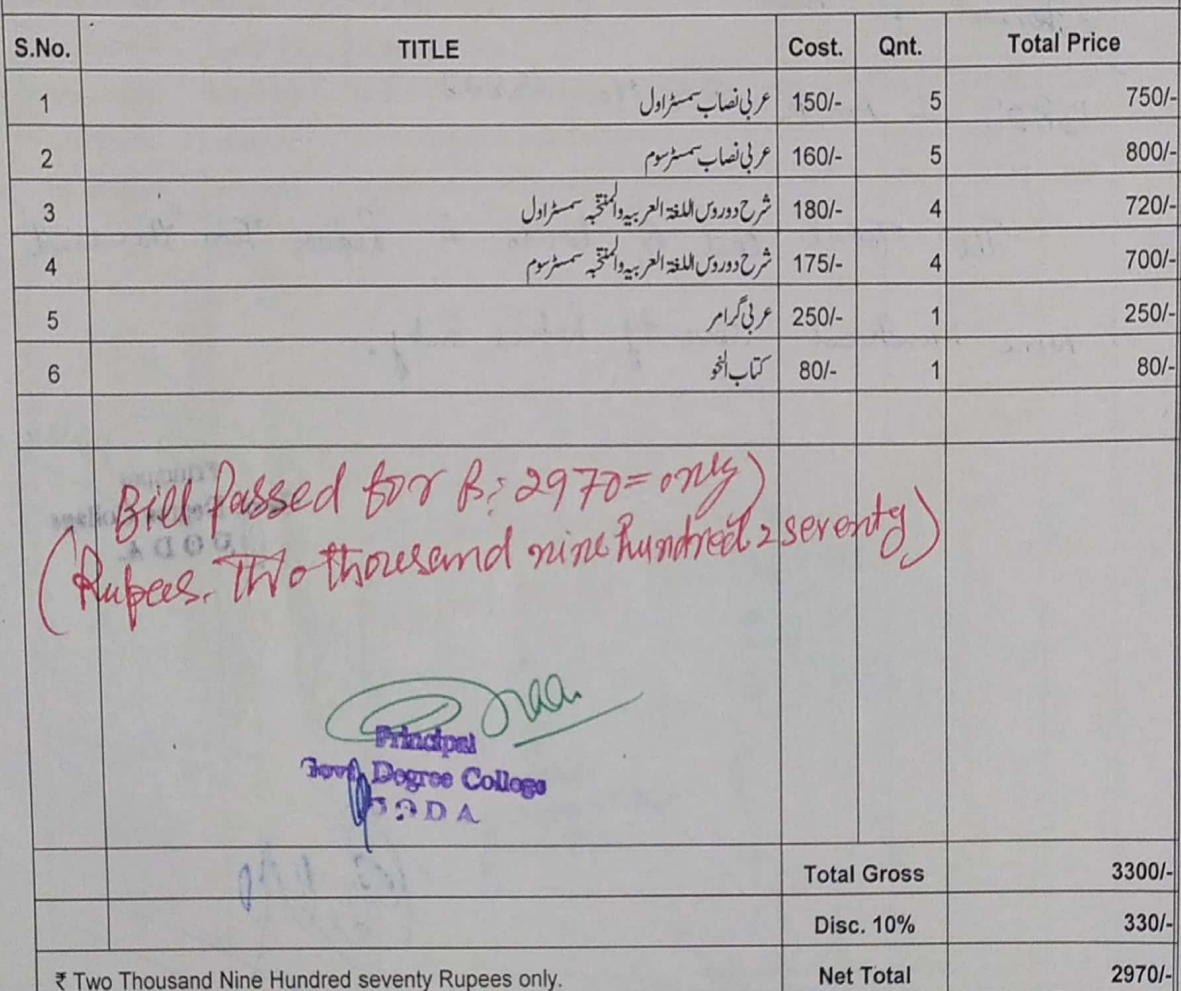 S.No. TITLE Cost. Qnt. Total Price
1 عربی نصاب سمسٹر اول 150/- 5 750/-
2 عربی نصاب سمسٹر سوم 160/- 5 800/-
3 شرح دوروس اللغۃ العربیہ والمنتخبہ سمسٹر اول 180/- 4 720/-
4 شرح دوروس اللغۃ العربیہ والمنتخبہ سمسٹر سوم 175/- 4 700/-
5 عربی گرامر 250/- 1 250/-
6 کتاب النحو 80/- 1 80/-
Bill Passed for Rs: 2970= only)
(Rupees. Two thousand nine hundred & seventy)
Principal
Govt. Degree College
DODA
Total Gross 3300/-
Disc. 10% 330/-
₹ Two Thousand Nine Hundred seventy Rupees only. Net Total 2970/-